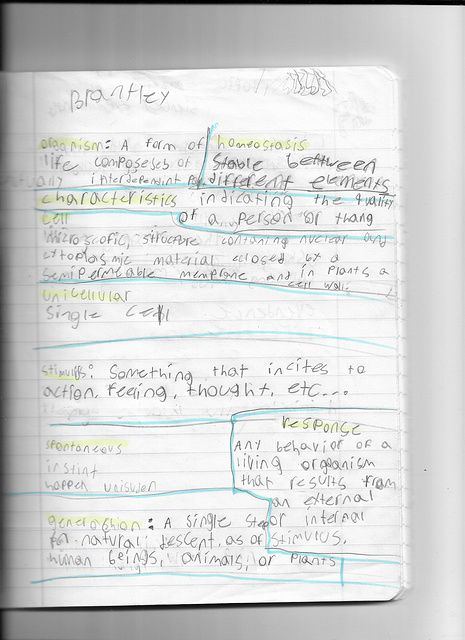 Brantley
organism: A form of
life composeseb of
interdependent
homeostasis
Stable between
different elements
characteristics indicating the quality
of a person or thang
cell
microscofic structure containing nuclear and
material eclosed by a
semipermeable memprane and in plants a
cell wall.
unicellular
Single cell
stimulus: Something that incites to
action, feeling, thought, etc...
response
Any behavior of a
living organism
that results from
an external
or internal
stimulus.
spontaneous
instint
generashion: A single step
for natural descent, as of
human beings, animals, or plants